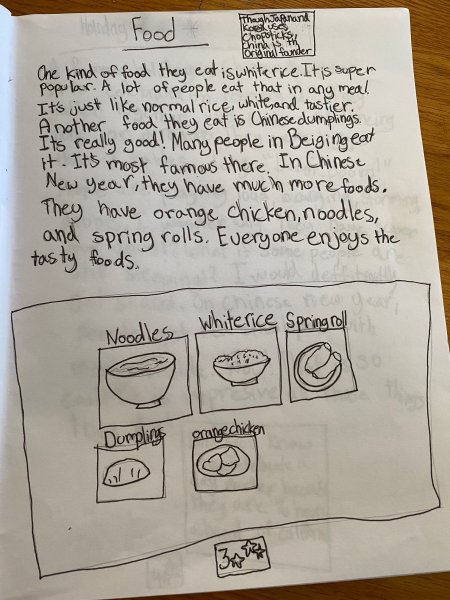 Food
Though Japan and
Korea uses
Chopsticks,
China is th
Original founder
One kind of food they eat is white rice. It is super
popular. A lot of people eat that in any meal
It's just like normal rice, white, and tastier.
Another food they eat is Chinese dumplings.
Its really good! Many people in Beiging eat
it. It's most famous there. In Chinese
New year, they have much more foods.
They have orange chicken, noodles,
and spring rolls. Everyone enjoys the
tasty foods.
Noodles
White rice
Spring roll
Dumplings
orange chicken
3